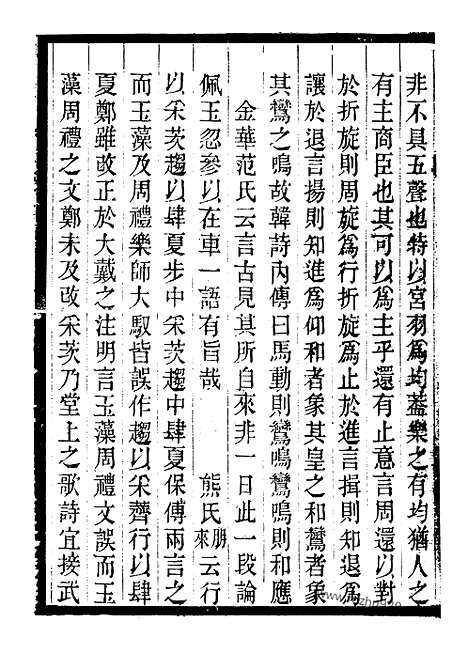 非不具五聲也特以宮羽爲均葢樂之有均猶人之
有主商臣也其可以爲主乎還有止意言周還以對
於折旋則周旋爲行折旋爲止於進言揖則知退爲
讓於退言揚則知進爲仰和者象其皇之和鸞者象
其鸞之鳴故韓詩內傳曰馬動則鸞鳴鸞鳴則和應
金華范氏云言古見其所自來非一日此一段論
佩玉忽參以在車一語有旨哉 熊氏朋來云行
以采茨趨以肆夏步中采茨趨中肆夏保傅兩言之
而玉藻及周禮樂師大馭皆誤作趨以采齊行以肆
夏鄭雖改正於大戴之注明言玉藻周禮文誤而玉
藻周禮之文鄭未及改采茨乃堂上之歌詩宜接武